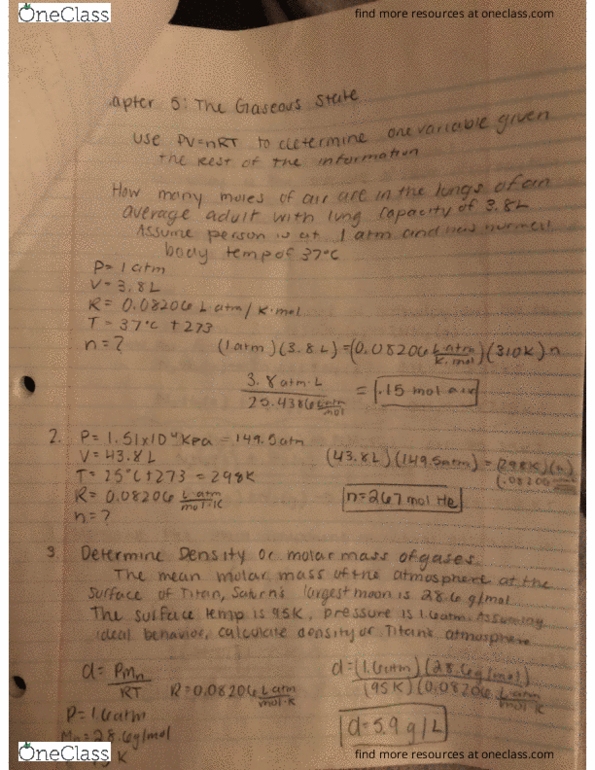 OneClass
find more resources at oneclass.com
apter 5: The Gaseous State
Use PV=nRT to determine one variable given
the rest of the information
How many moles of air are in the lungs of an
average adult with lung capacity of 3.8L
Assume person is at 1 atm and has normal
body temp of 37°C
P= 1 atm
V= 3.8L
R= 0.08206 L atm/K·mol
T= 37°C +273
n=? (1 atm)(3.8L)=(0.08206 L·atm/K·mol)(310K)n
3.8 atm·L / 25.4386 L·atm/mol = .15 mol air
2. P= 1.51x10⁴ Kpa = 149.0 atm
V= 43.8L (43.8L)(149.5atm) = (298K)(n)
T= 25°C+273 = 298K (.08206
R= 0.08206 L·atm/mol·K n=267 mol He
n=?
3. Determine Density or molar mass of gases.
The mean molar mass of the atmosphere at the
surface of Titan, Saturn's largest moon is 28.6 g/mol
The surface temp is 95K, pressure is 1.6atm. Assuming
ideal behavior, calculate density of Titan's atmosphere
d= PMn/RT R=0.08206 L·atm/mol·K d=(1.6atm)(28.6g/mol)/(95K)(0.08206 L·atm/mol·K)
P= 1.6atm d=5.9 g/L
Mn=28.6g/mol
K
OneClass
find more resources at oneclass.com